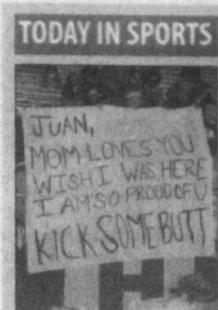 TODAY IN SPORTS
JUAN,
MOM LOVES YOU
WISH I WAS HERE
I AM SO PROUD OF U
KICK SOME BUTT